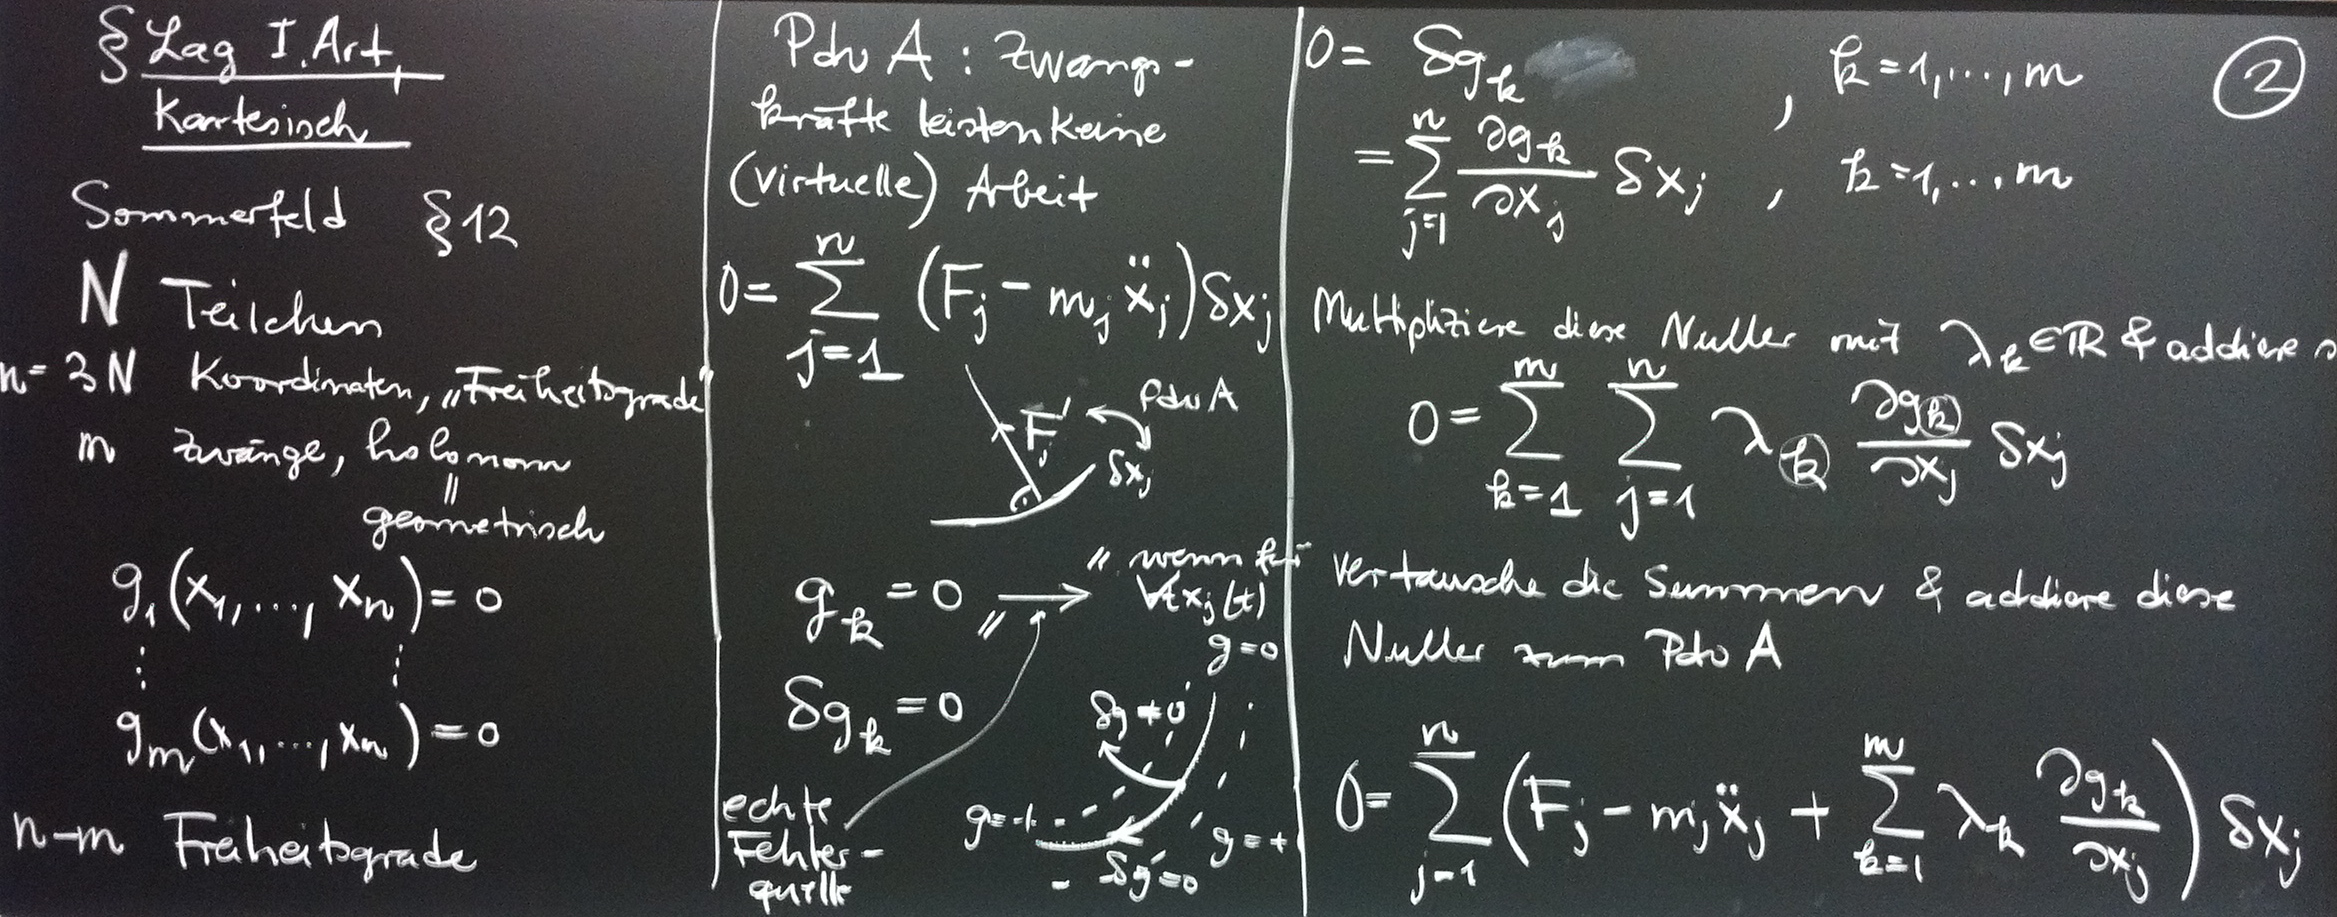 § Lag I. Art,
Kartesisch
Sommerfeld § 12
N Teilchen
n = 3N Koordinaten, „Freiheitsgrade"
m Zwänge, holonom
=
geometrisch
g₁(x₁, ..., xₙ) = 0
⋮ ⋮
gₘ(x₁, ..., xₙ) = 0
n-m Freiheitsgrade
PdvA : Zwangs-
kräfte leisten keine
(virtuelle) Arbeit
0 = ∑_{j=1}^{n} (F_j - m_j ẍ_j) δx_j
F_j' PdvA
δx_j
g_k = 0 ⟶
" wenn
∀ x_j(t)
δg_k = 0
echte
Fehler-
quelle
g=0
δg ≠ 0
g=-1
g=+
δg=0
②
0 = δg_k , k = 1, ..., m
= ∑_{j=1}^{n} ∂g_k/∂x_j δx_j , k = 1, ..., m
Multipliziere diese Nuller mit λ_k ∈ ℝ & addiere
0 = ∑_{k=1}^{m} ∑_{j=1}^{n} λ_k ∂g_k/∂x_j δx_j
Vertausche die Summen & addiere diese
Nuller zum PdvA
0 = ∑_{j=1}^{n} (F_j - m_j ẍ_j + ∑_{k=1}^{m} λ_k ∂g_k/∂x_j) δx_j